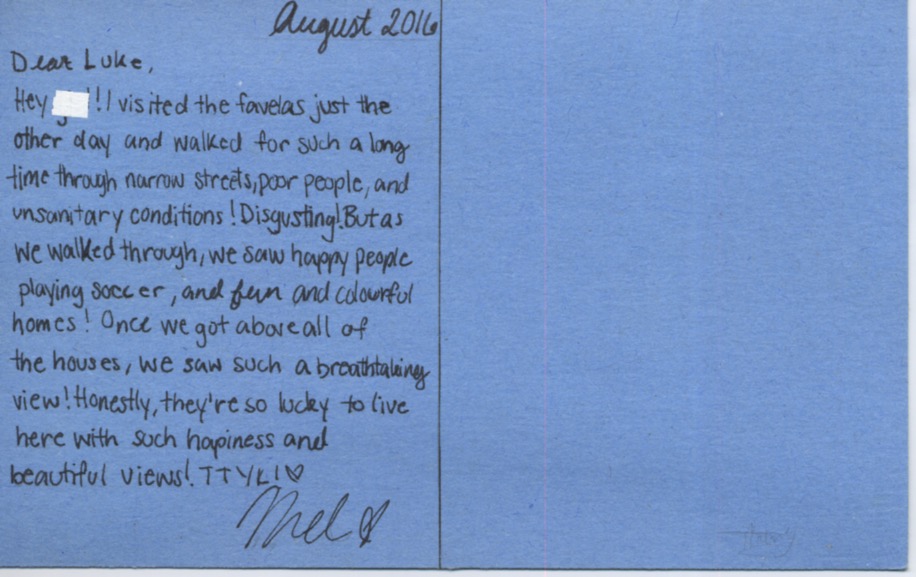 August 2016
Dear Luke,
Hey !! I visited the favelas just the
other day and walked for such a long
time through narrow streets, poor people, and
unsanitary conditions! Disgusting! But as
we walked through, we saw happy people
playing soccer, and fun and colourful
homes! Once we got above all of
the houses, we saw such a breathtaking
view! Honestly, they're so lucky to live
here with such hapiness and
beautiful views! TTYL! ♡
Mel